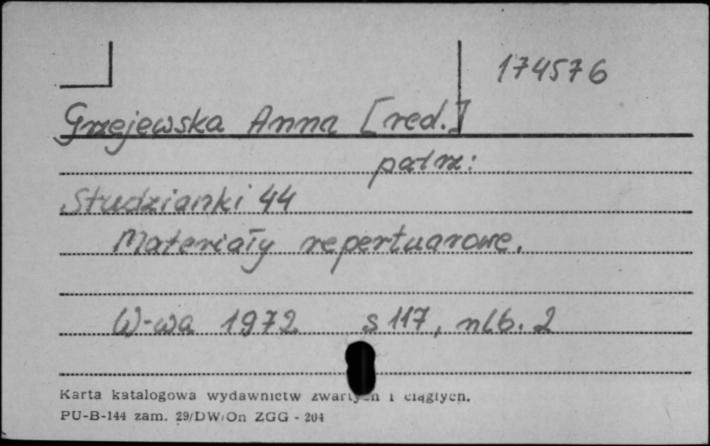 174576
Grzejewska Anna [red.]
patrz:
Studzianki 44
Materiały repertuarowe.
W-wa 1972 s 117, nlb. 2
Karta katalogowa wydawnictw zwartych i ciągłych.
PU-B-144 zam. 29/DW/On ZGG - 204